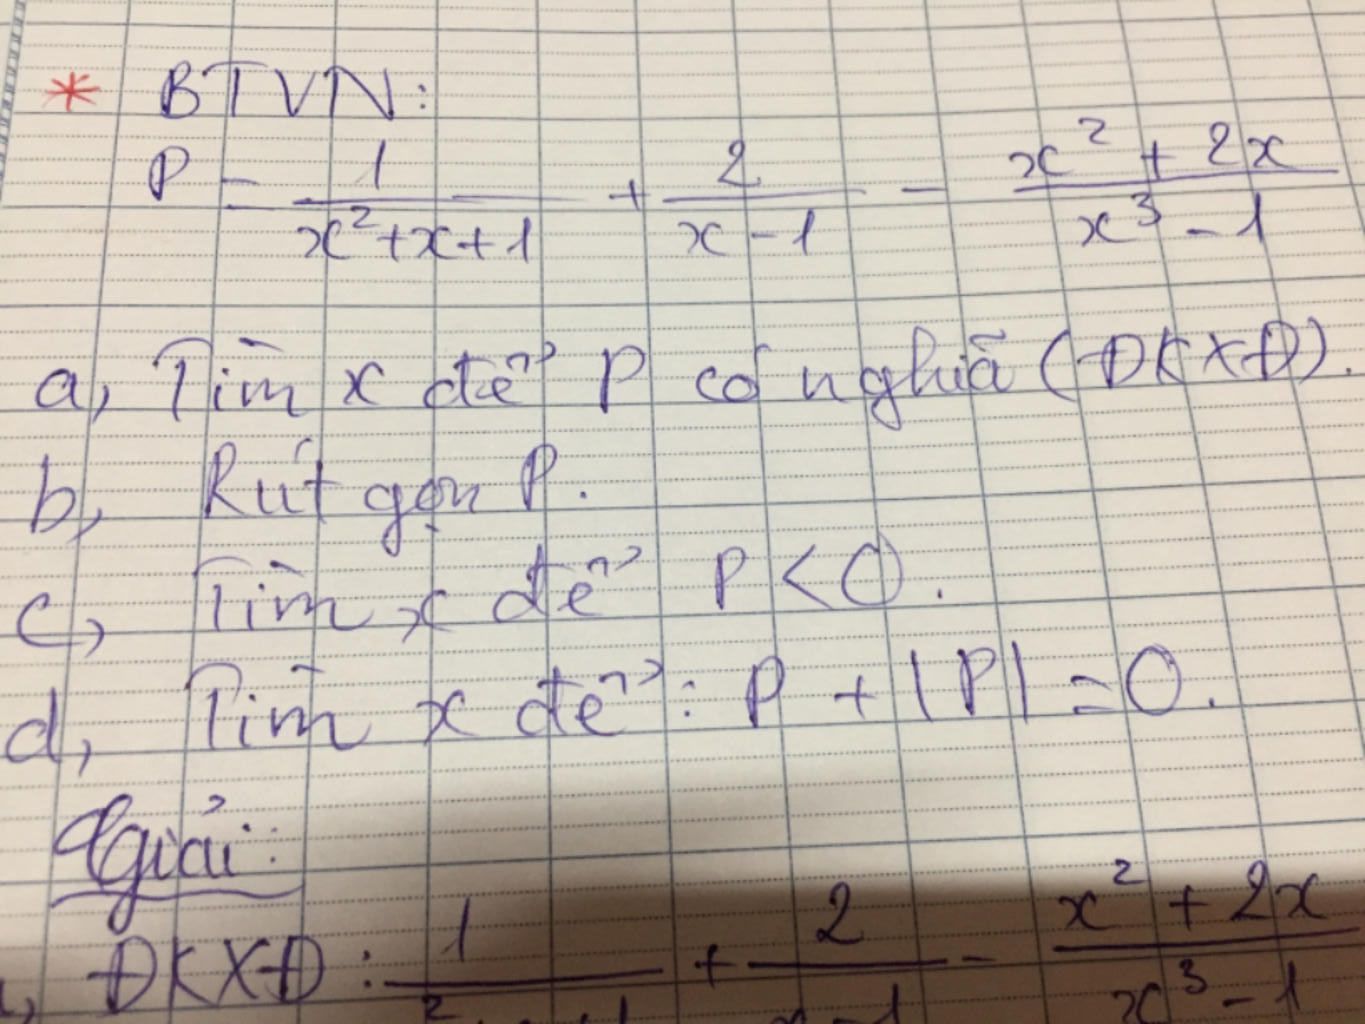 * BTVN:
P = 1/(x²+x+1) + 2/(x-1) - (x²+2x)/(x³-1)
a, Tìm x để P có nghĩa (ĐKXĐ).
b, Rút gọn P.
c, Tìm x để P < 0.
d, Tìm x để: P + |P| = 0.
Giải:
ĐKXĐ: 1/ + 2/ - (x²+2x)/(x³-1)